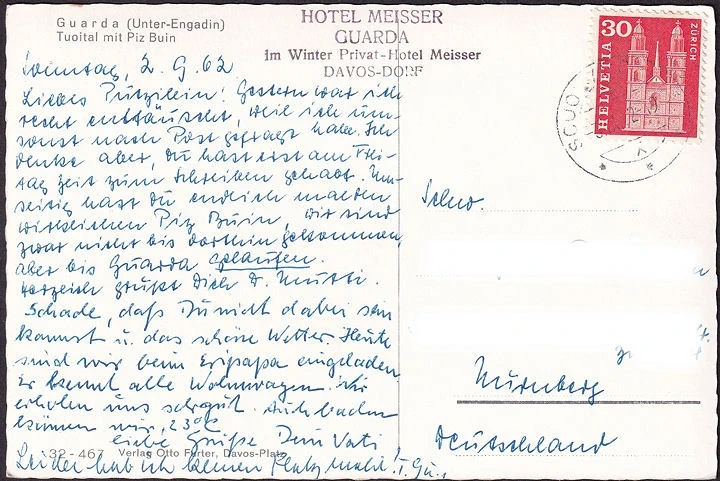 Guarda (Unter-Engadin)
Tuoital mit Piz Buin
HOTEL MEISSER
GUARDA
Im Winter Privat-Hotel Meisser
DAVOS-DORF
30
HELVETIA
ZÜRICH
SCUO
Sonntag, 2.9.62
Liebes Putzilein! Gestern war ich
recht enttäuscht, weil ich um-
sonst nach Post gefragt habe. Ich
denke aber, Du hast erst am Frei-
tag Zeit zum Schreiben gehabt. Um-
seitig hast Du endlich mal den
wirklichen Piz Buin, wir sind
zwar nicht bis dorthin gekommen,
aber bis Guarda gelaufen.
Herzlich grüßt Dich D. Mutti.
Schade, daß Du nicht dabei sein
kannst u. das schöne Wetter. Heute
sind wir beim eingeladen
Er kennt alle Wohnwagen. Wir
erholen uns sehr gut. Auch baden
können wir, 23°C
liebe Grüße Dein Vati
32-467 Verlag Otto Furter, Davos-Platz
Leider hab ich keinen Platz mehr!
Nürnberg
Deutschland